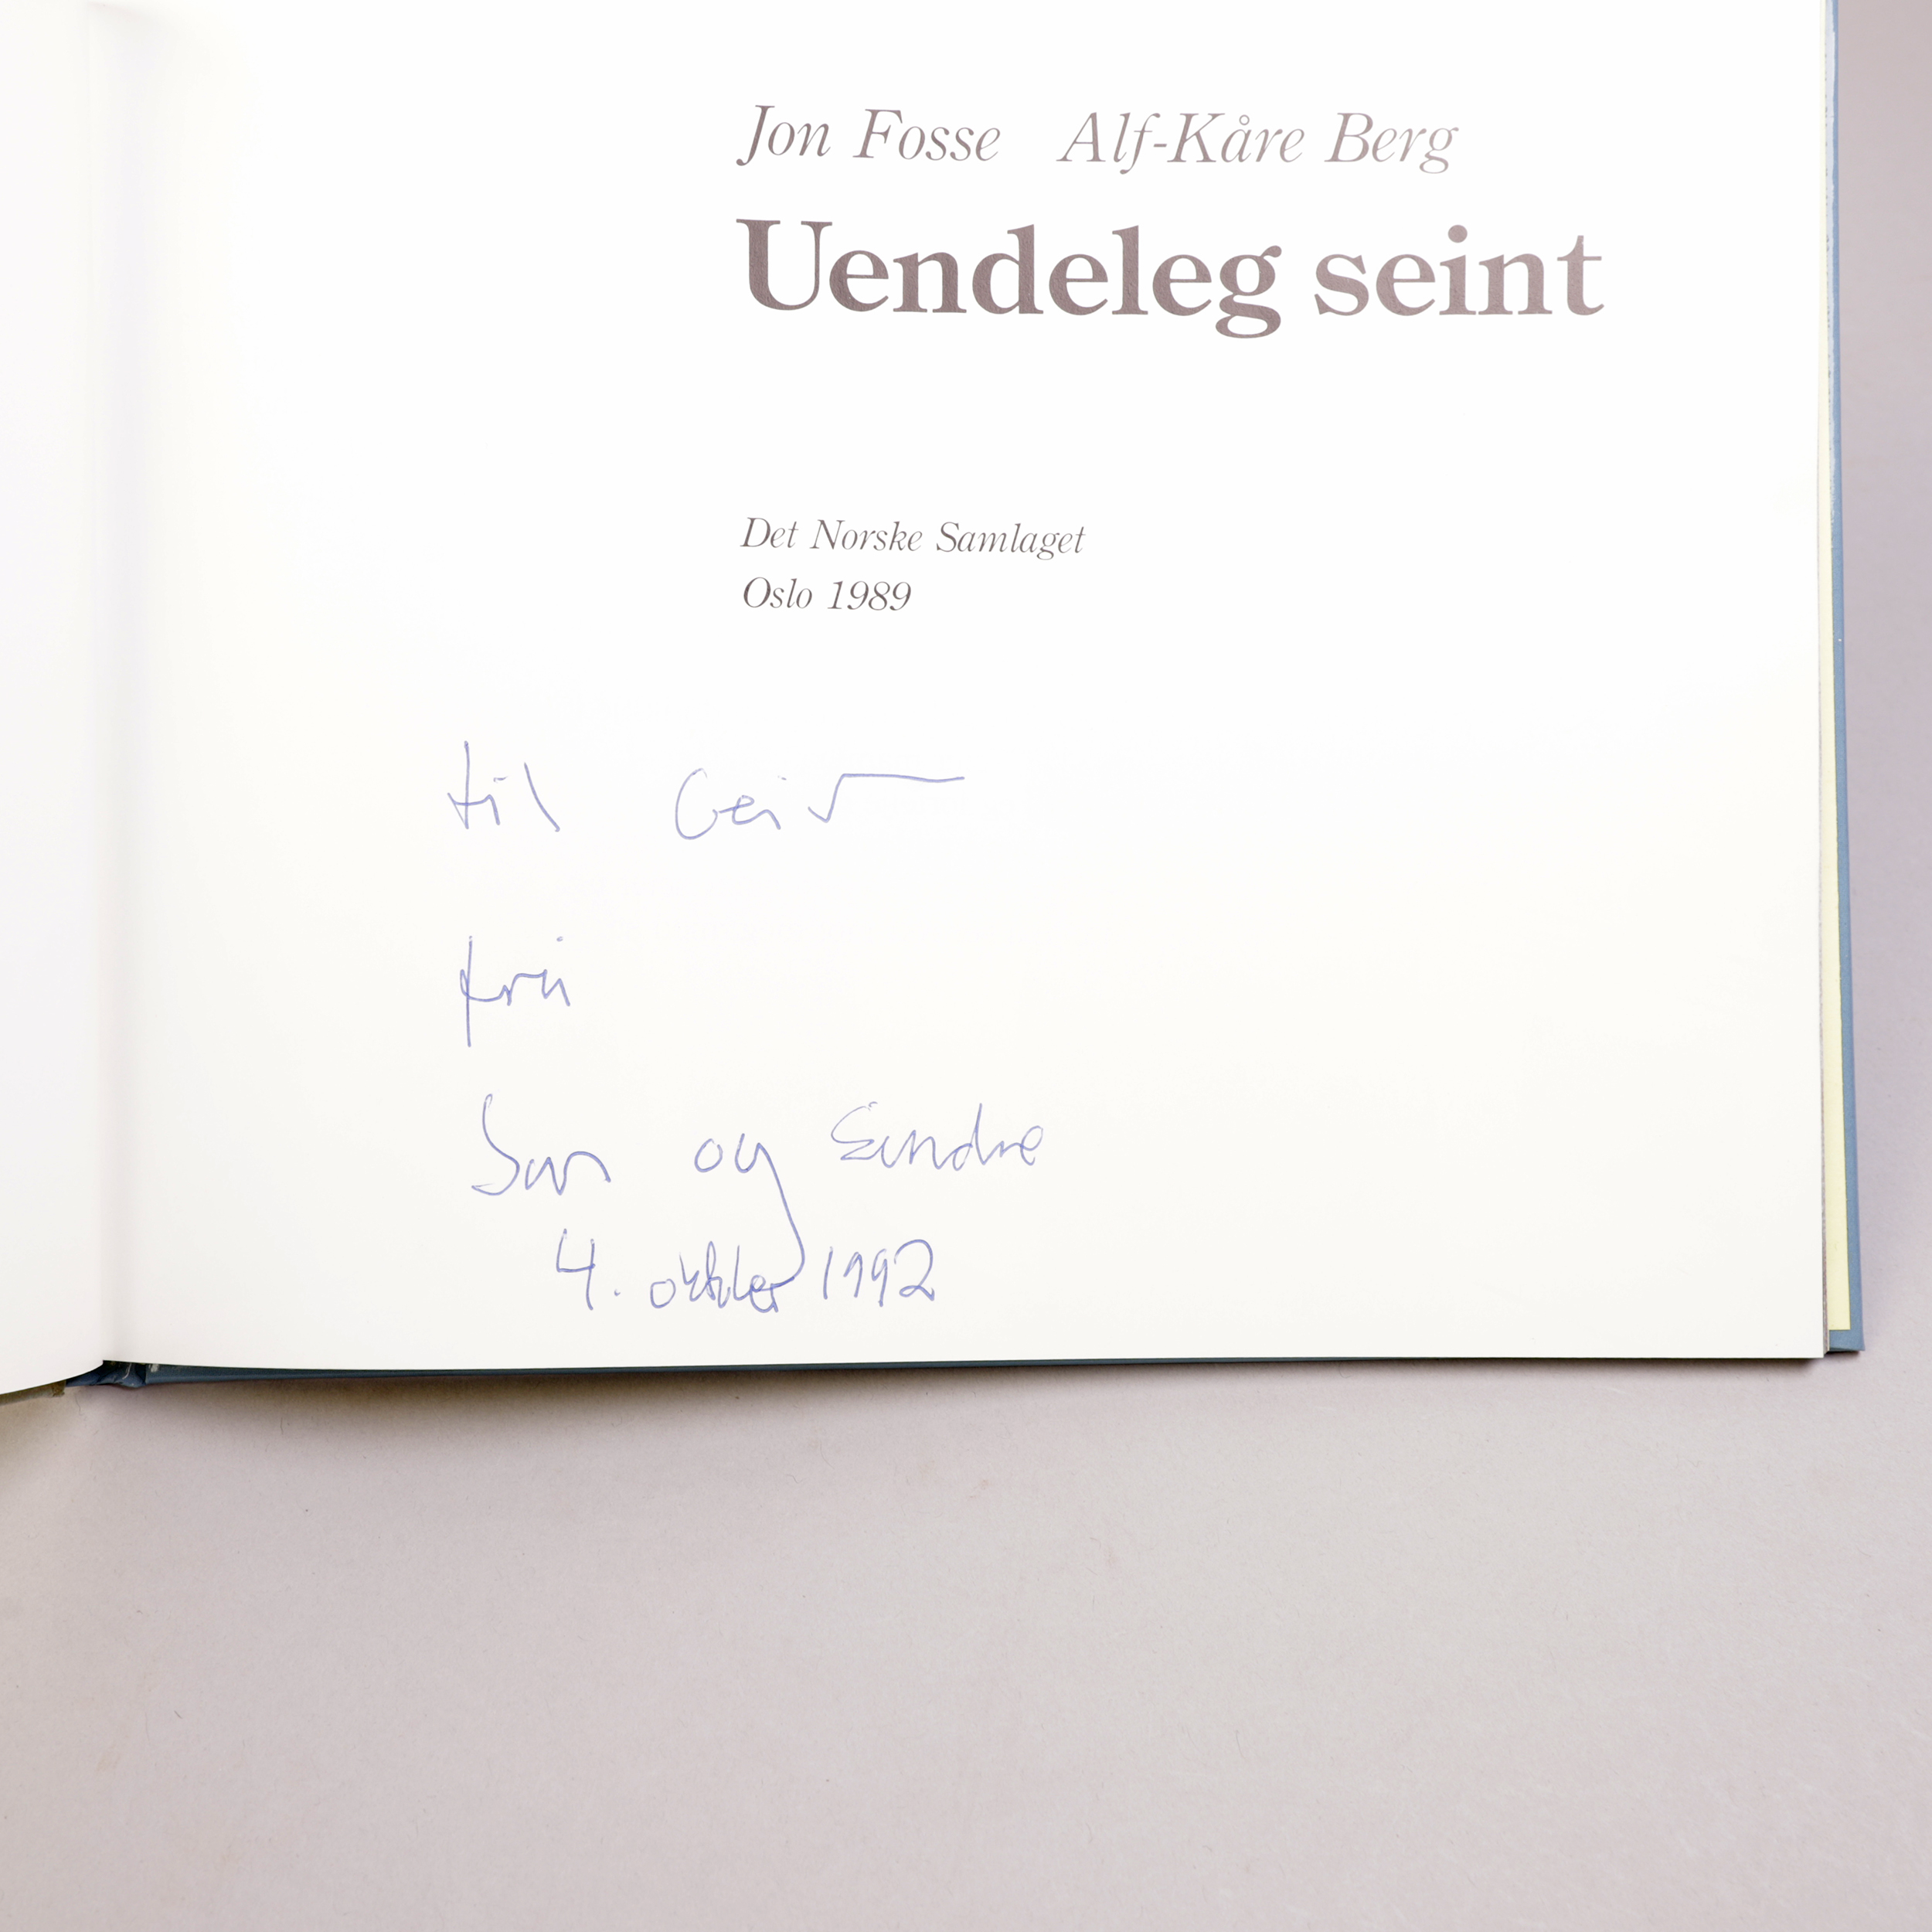 Jon Fosse Alf-Kåre Berg
Uendeleg seint
Det Norske Samlaget
Oslo 1989
til Geir
frå
Jon og Eindre
4. oktober 1992